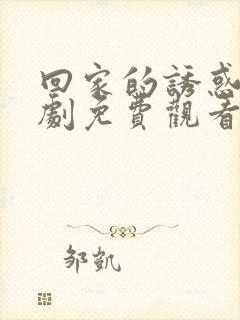 回家的誘惑
劇免費觀看
邹凯